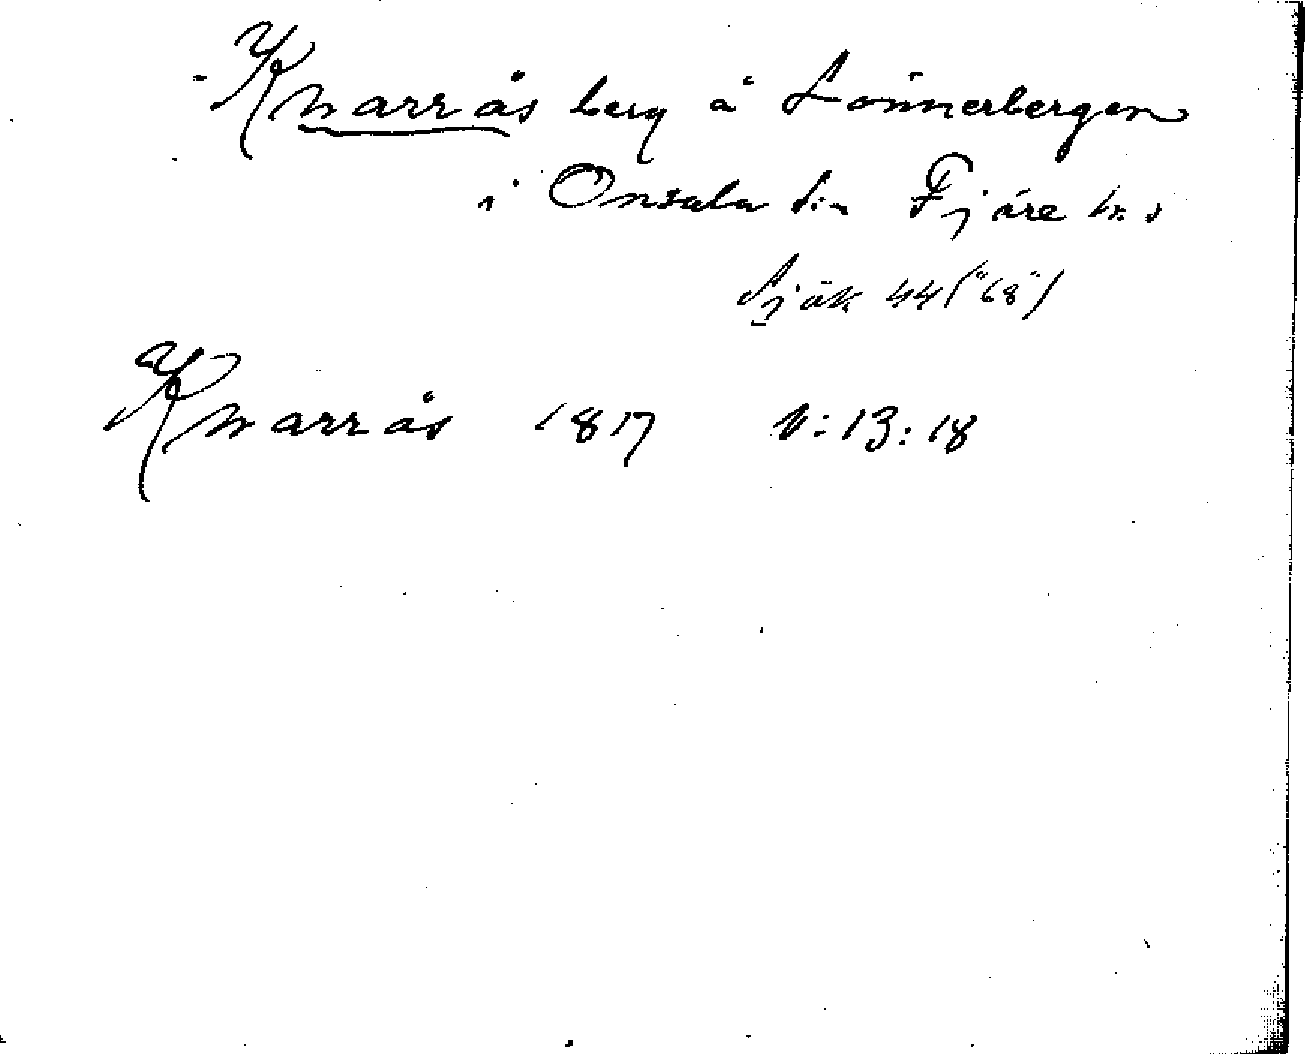 Knarrås berg å Lönnerbergen
i Onsala sn Fjäre hd
Sjök 44 ("68")
Knarrås 1817 V:13:18